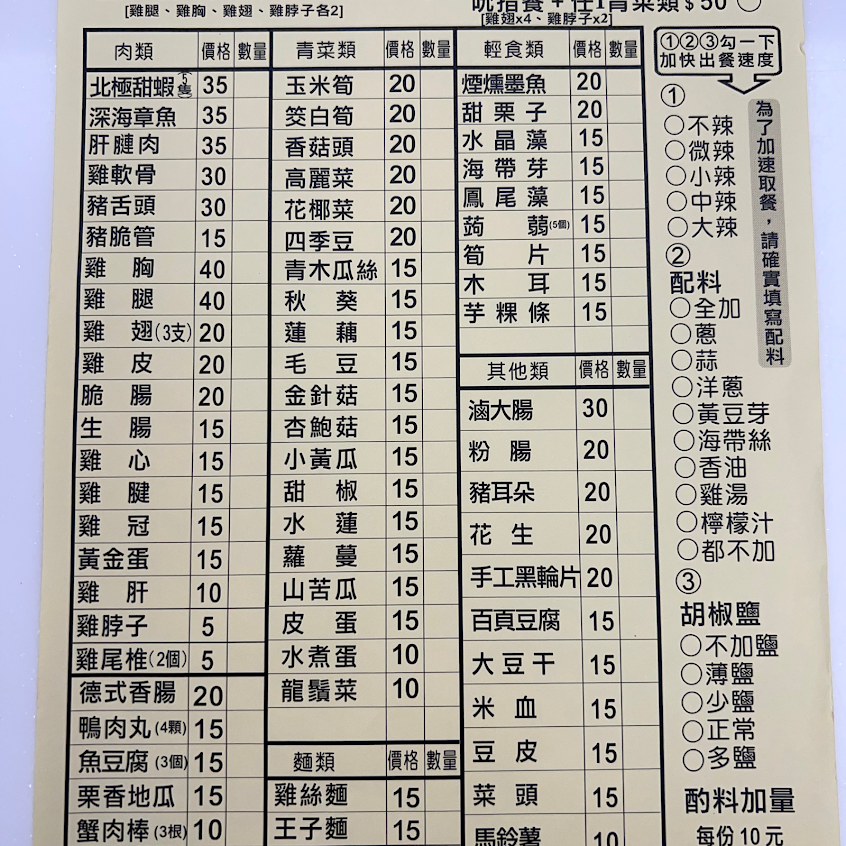 [雞腿、雞胸、雞翅、雞脖子各2]
[雞翅x4、雞脖子x2]
肉類 價格 數量
北極甜蝦(5隻) 35
深海章魚 35
肝腱肉 35
雞軟骨 30
豬舌頭 30
豬脆管 15
雞胸 40
雞腿 40
雞翅(3支) 20
雞皮 20
脆腸 20
生腸 15
雞心 15
雞腱 15
雞冠 15
黃金蛋 15
雞肝 10
雞脖子 5
雞尾椎(2個) 5
德式香腸 20
鴨肉丸(4顆) 15
魚豆腐(3個) 15
栗香地瓜 15
蟹肉棒(3根) 10
青菜類 價格 數量
玉米筍 20
筊白筍 20
香菇頭 20
高麗菜 20
花椰菜 20
四季豆 20
青木瓜絲 15
秋葵 15
蓮藕 15
毛豆 15
金針菇 15
杏鮑菇 15
小黃瓜 15
甜椒 15
水蓮 15
蘿蔓 15
山苦瓜 15
皮蛋 15
水煮蛋 10
龍鬚菜 10
麵類 價格 數量
雞絲麵 15
王子麵 15
輕食類 價格 數量
煙燻墨魚 20
甜栗子 20
水晶藻 15
海帶芽 15
鳳尾藻 15
蒟蒻(5個) 15
筍片 15
木耳 15
芋粿條 15
其他類 價格 數量
滷大腸 30
粉腸 20
豬耳朵 20
花生 20
手工黑輪片 20
百頁豆腐 15
大豆干 15
米血 15
豆皮 15
菜頭 15
馬鈴薯 10
①②③勾一下
加快出餐速度
①
○不辣
○微辣
○小辣
○中辣
○大辣
②
配料
○全加
○蔥
○蒜
○洋蔥
○黃豆芽
○海帶絲
○香油
○雞湯
○檸檬汁
○都不加
③
胡椒鹽
○不加鹽
○薄鹽
○少鹽
○正常
○多鹽
酌料加量
每份10元
為了加速取餐，請確實填寫配料